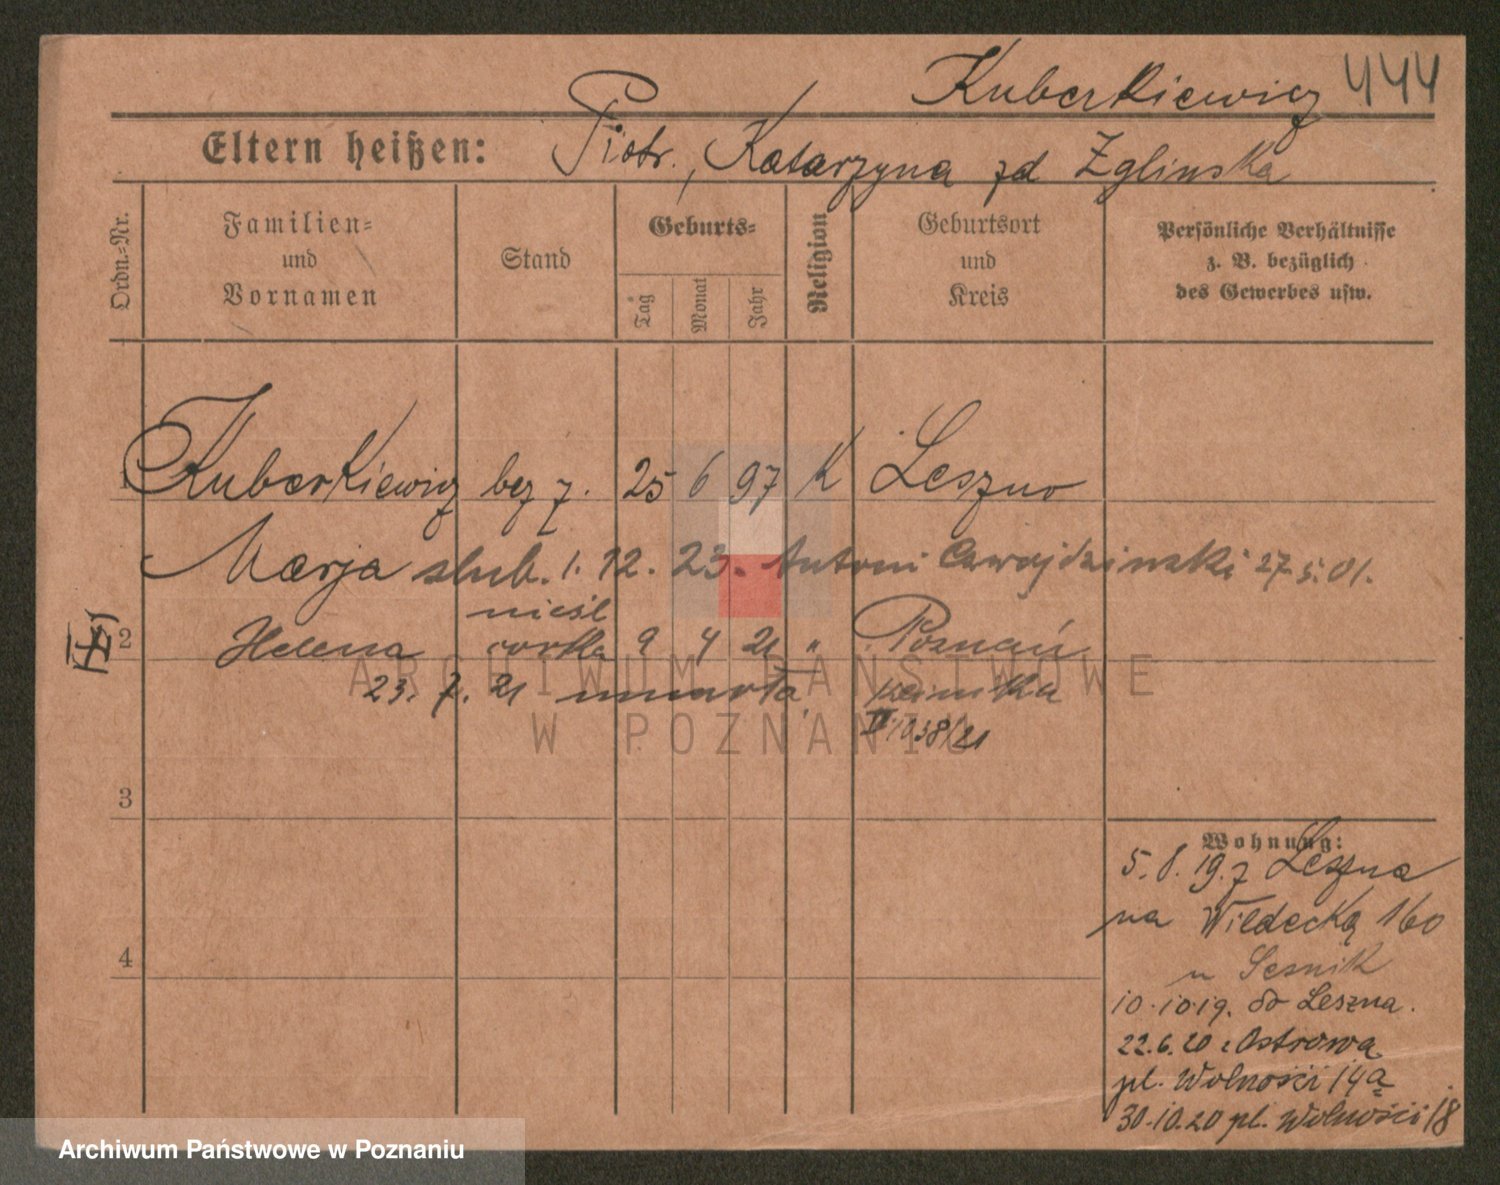 Kuberkiewicz 444
Eltern heißen: Piotr, Katarzyna zd Zglinska
Ordn.-Nr.
Familien- und Vornamen
Stand
Geburts-
Tag
Monat
Jahr
Religion
Geburtsort und Kreis
Persönliche Verhältnisse z. B. bezüglich des Gewerbes usw.
1 Kuberkiewicz bez z. 25 6 97 K Leszno
Marja slub. 1. 12. 23. Antoni 27.5.01.
nieśl
2 Helena corka 9 4 21 " Poznań
23. 7. 21 umarła.
1038/21
ARCHIWUM PAŃSTWOWE
W POZNANIU
3
4
Wohnung:
5.8.19. z Leszna
na Wildecką 160
u Lesnik
10.10.19. do Leszna.
22.6.20 z Ostrowa
pl. Wolności 14a
30.10.20 pl. Wolności 18
Archiwum Państwowe w Poznaniu